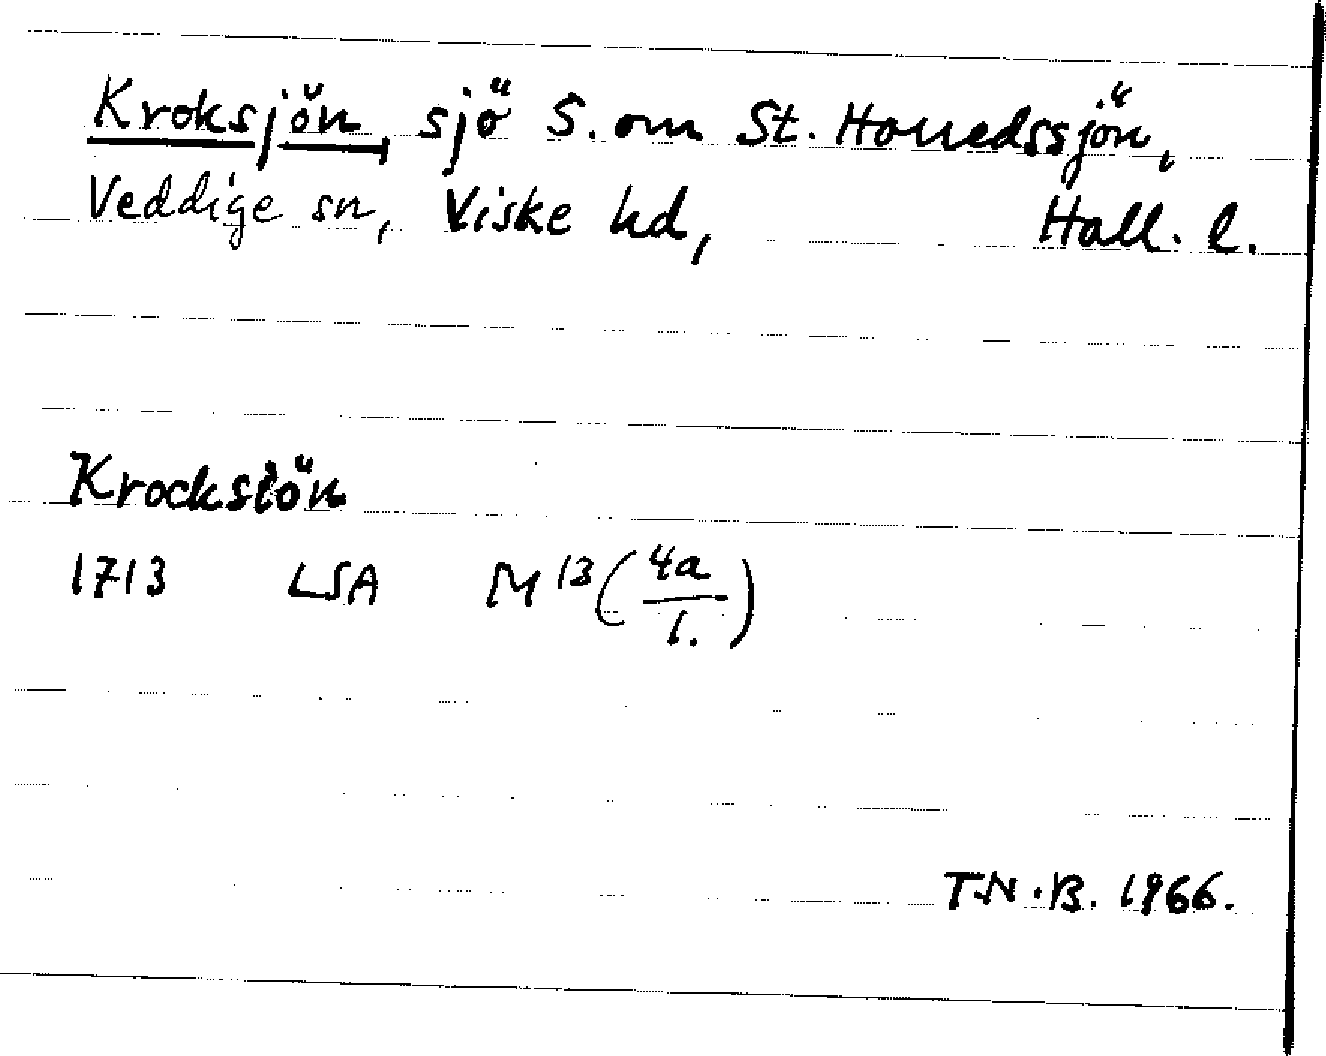 Kroksjön, sjö S. om St. Hornedssjön,
Veddige sn, Viske hd, Hall. l.
Krocksiön
1713 LSA M 13 (4a/1.)
T.N.B. 1966.